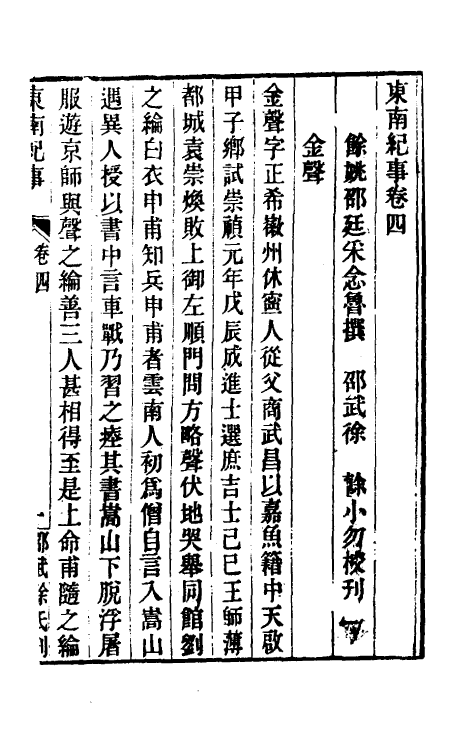 東南紀事卷四
餘姚邵廷采念魯撰　邵武徐　榦小勿校刊
金聲
金聲字正希徽州休寧人從父商武昌以嘉魚籍中天啟
甲子鄉試崇禎元年戊辰成進士選庶吉士己巳王師薄
都城袁崇煥敗上御左順門問方略聲伏地哭舉同館劉
之綸白衣申甫知兵申甫者雲南人初為僧自言入嵩山
遇異人授以書中言車戰乃習之瘞其書嵩山下脫浮屠
服遊京師與聲之綸善三人甚相得至是上命甫隨之綸
東南紀事
卷四
一
邵武徐氏刊